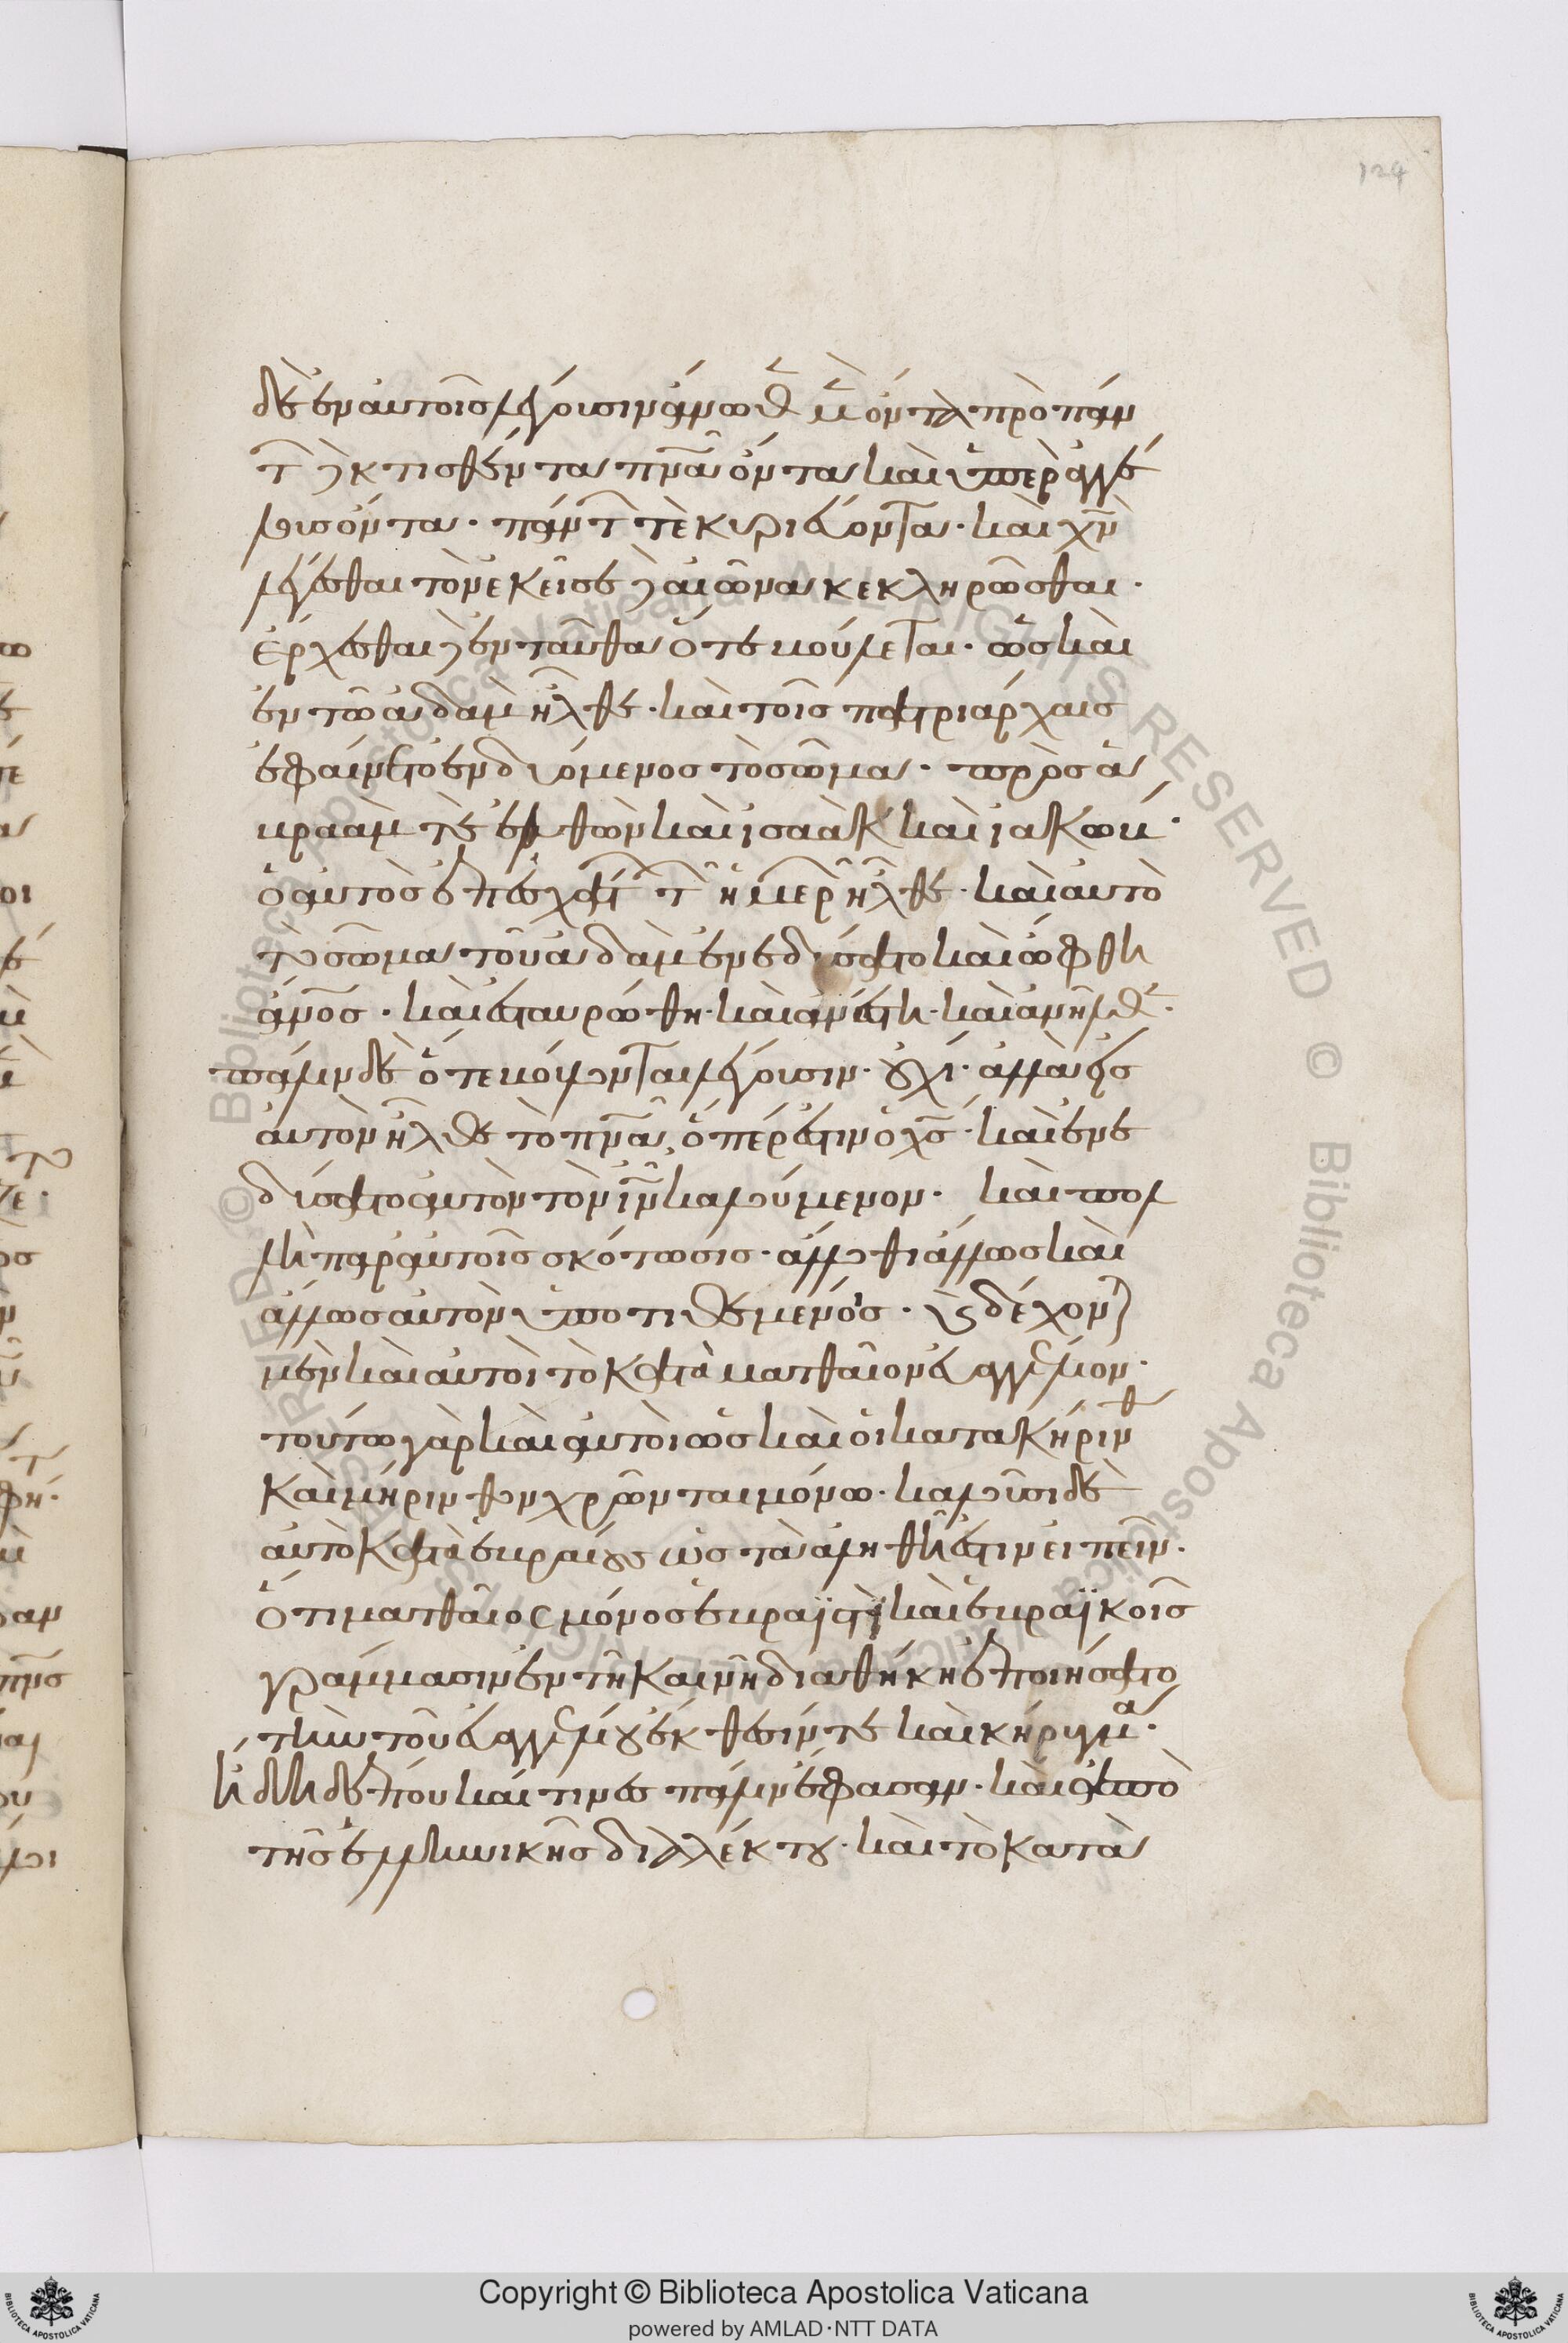 124
δὲ ἐν αὐτοῖς λέγουσιν ἄνωθ μὲν ὄντα πρὸ πάν
τ κτισθέντα πνα ὄντα καὶ ὑπὲρ ἀγγέ
λους ὄντα. πάντ τε κυριεύοντα. καὶ χν
λέγεσθαι τὸν ἐκεῖσε αἰῶνα κεκληρῶσθαι.
ἔρχεσθαι ἐνταῦθα ὅτε βούλεται. ὡς καὶ
ἐν τῶ ἀδὰμ ἦλθε. καὶ τοῖς πατριάρχαις
ἐφαίνετο ἐνδυόμενος τὸ σῶμα. πρὸς ἀ
βραάμ τε ἐλθὼν καὶ ἰσαὰκ καὶ ἰακώβ.
ὁ αὐτὸς ἐπ' ἐσχάτ τ ἡμερ ἦλθε. καὶ αὐτὸ
τὸ σῶμα τοῦ ἀδὰμ ἐνεδύσατο καὶ ὤφθη
ἄνος. καὶ ἐσταυρώθη. καὶ ἀνέστη. καὶ ἀνῆλθ.
πάλιν δὲ ὅτε βούλονται λέγουσιν. οὐχί. ἀλλὰ εἰς
αὐτὸν ἦλθε τὸ πνα ὅπερ ἐστὶν ὁ χς. καὶ ἐνε
δύσατο αὐτὸν τὸν ιν καλούμενον. καὶ πολ
λὴ παρ' αὐτοῖς σκότωσις. ἄλλοθι ἄλλως καὶ
ἄλλως αὐτὸν ὑποτιθεμένοις. καὶ δέχοντ
μὲν καὶ αὐτοὶ τὸ κατὰ ματθαῖον εὐαγγέλιον.
τούτω γὰρ καὶ αὐτοὶ ὡς καὶ οἱ κατὰ κήρινθ
καὶ μήρινθον χρῶνται μόνω. καλοῦσι δὲ
αὐτὸ κατὰ ἑβραίους ὡς τὰ ἀληθῆ ἔστιν εἰπεῖν.
ὅτι ματθαῖος μόνος ἑβραϊστὶ καὶ ἑβραϊκοῖς
γράμμασιν ἐν τῆ καινῆ διαθήκη ἐποιήσατο
τὴν τοῦ εὐαγγελίου ἔκθεσίν τε καὶ κήρυγμα.
ἤδη δέ που καί τινες πάλιν ἔφασαν. καὶ ἀπὸ
τῆς ἑλληνικῆς διαλέκτου. καὶ τὸ κατὰ
Copyright © Biblioteca Apostolica Vaticana
powered by AMLAD·NTT DATA